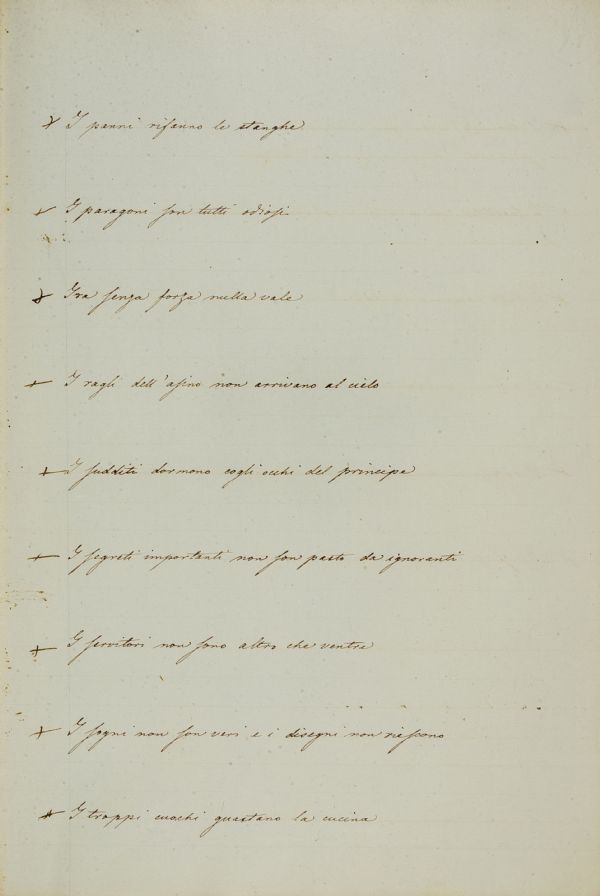 I panni rifanno le stanghe
I paragoni son tutti odiosi
Ira senza forza nulla vale
I ragli dell'asino non arrivano al cielo
I sudditi dormono cogli occhi del principe
I segreti importanti non son pasto da ignoranti
I servitori non sono altro che ventre
I sogni non son veri e i disegni non riescono
I troppi cuochi guastano la cucina